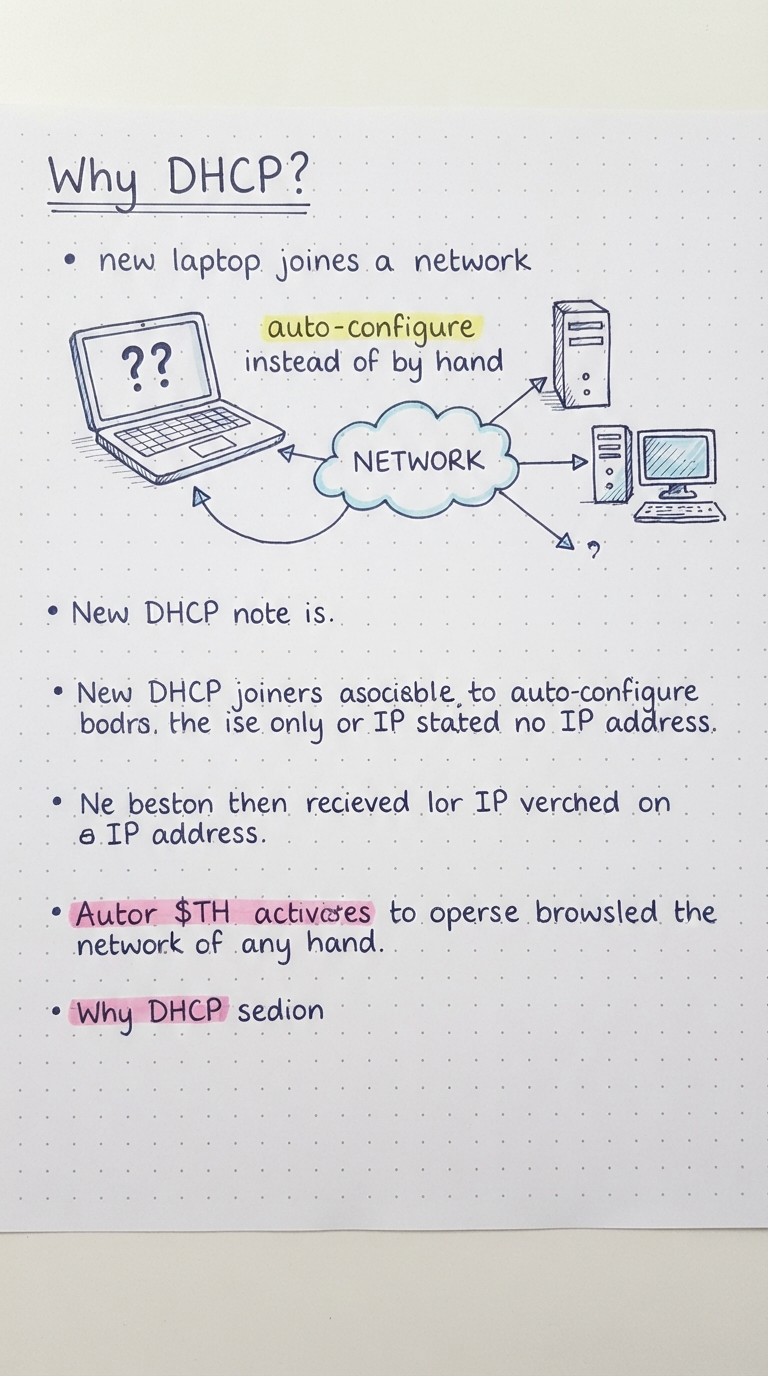 Why DHCP?
• new laptop joines a network
auto-configure
instead of by hand
??
NETWORK
?
• New DHCP note is.
• New DHCP joiners asociable, to auto-configure
bodrs. the ise only or IP stated no IP address.
• Ne beston then recieved lor IP verched on
IP address.
• Autor $TH to operse browsled the
network of any hand.
• Why DHCP sedion